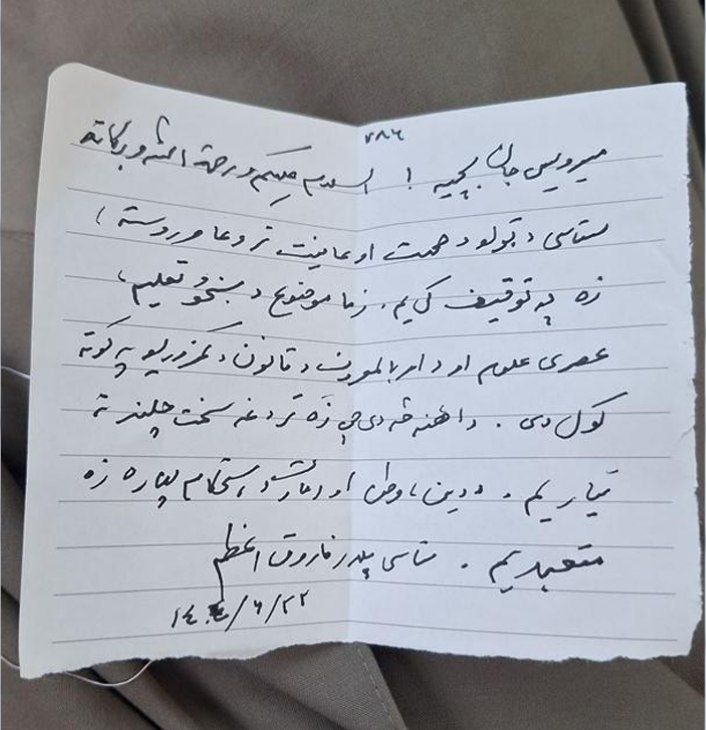 ۷۸۶
میرویس جان بچیه ! السلام علیکم و رحمة الله و برکاته
ستاسی د ټولو د صحت او عافیت تر دعا وروسته ؛
زه په توقیف کی یم. زما موضوع د ښځو تعلیم،
عصری علوم او د امر بالمعروف د قانون د کمزوریو په ګوته
کول دی. دا هغه څه دی چی زه تر دغه سخت چلند ته
تیار یم. د دین، وطن او استحکام لپاره زه
متعهد یم. ستاسی پلار فاروق اعظم
۱٤۰٤/۶/۲۲